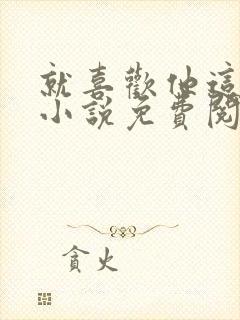 就喜歡他這
小說免費閱
貪火